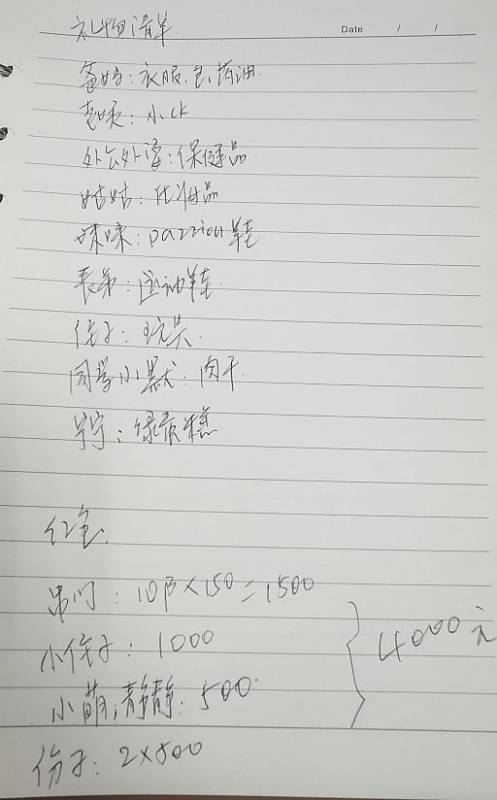 礼物清单
Date / /
爸妈：衣服.包.药油.
老妹：小ck
外公外婆：保健品
姑姑：化妆品
妹妹：pazzion鞋
表弟：运动鞋
侄子：玩具.
同学小默：肉干
宁宁：绿蛋糕
红包.
串门：10户×150=1500
小侄子：1000
小萌,静静：500
4000元
份子：2×500